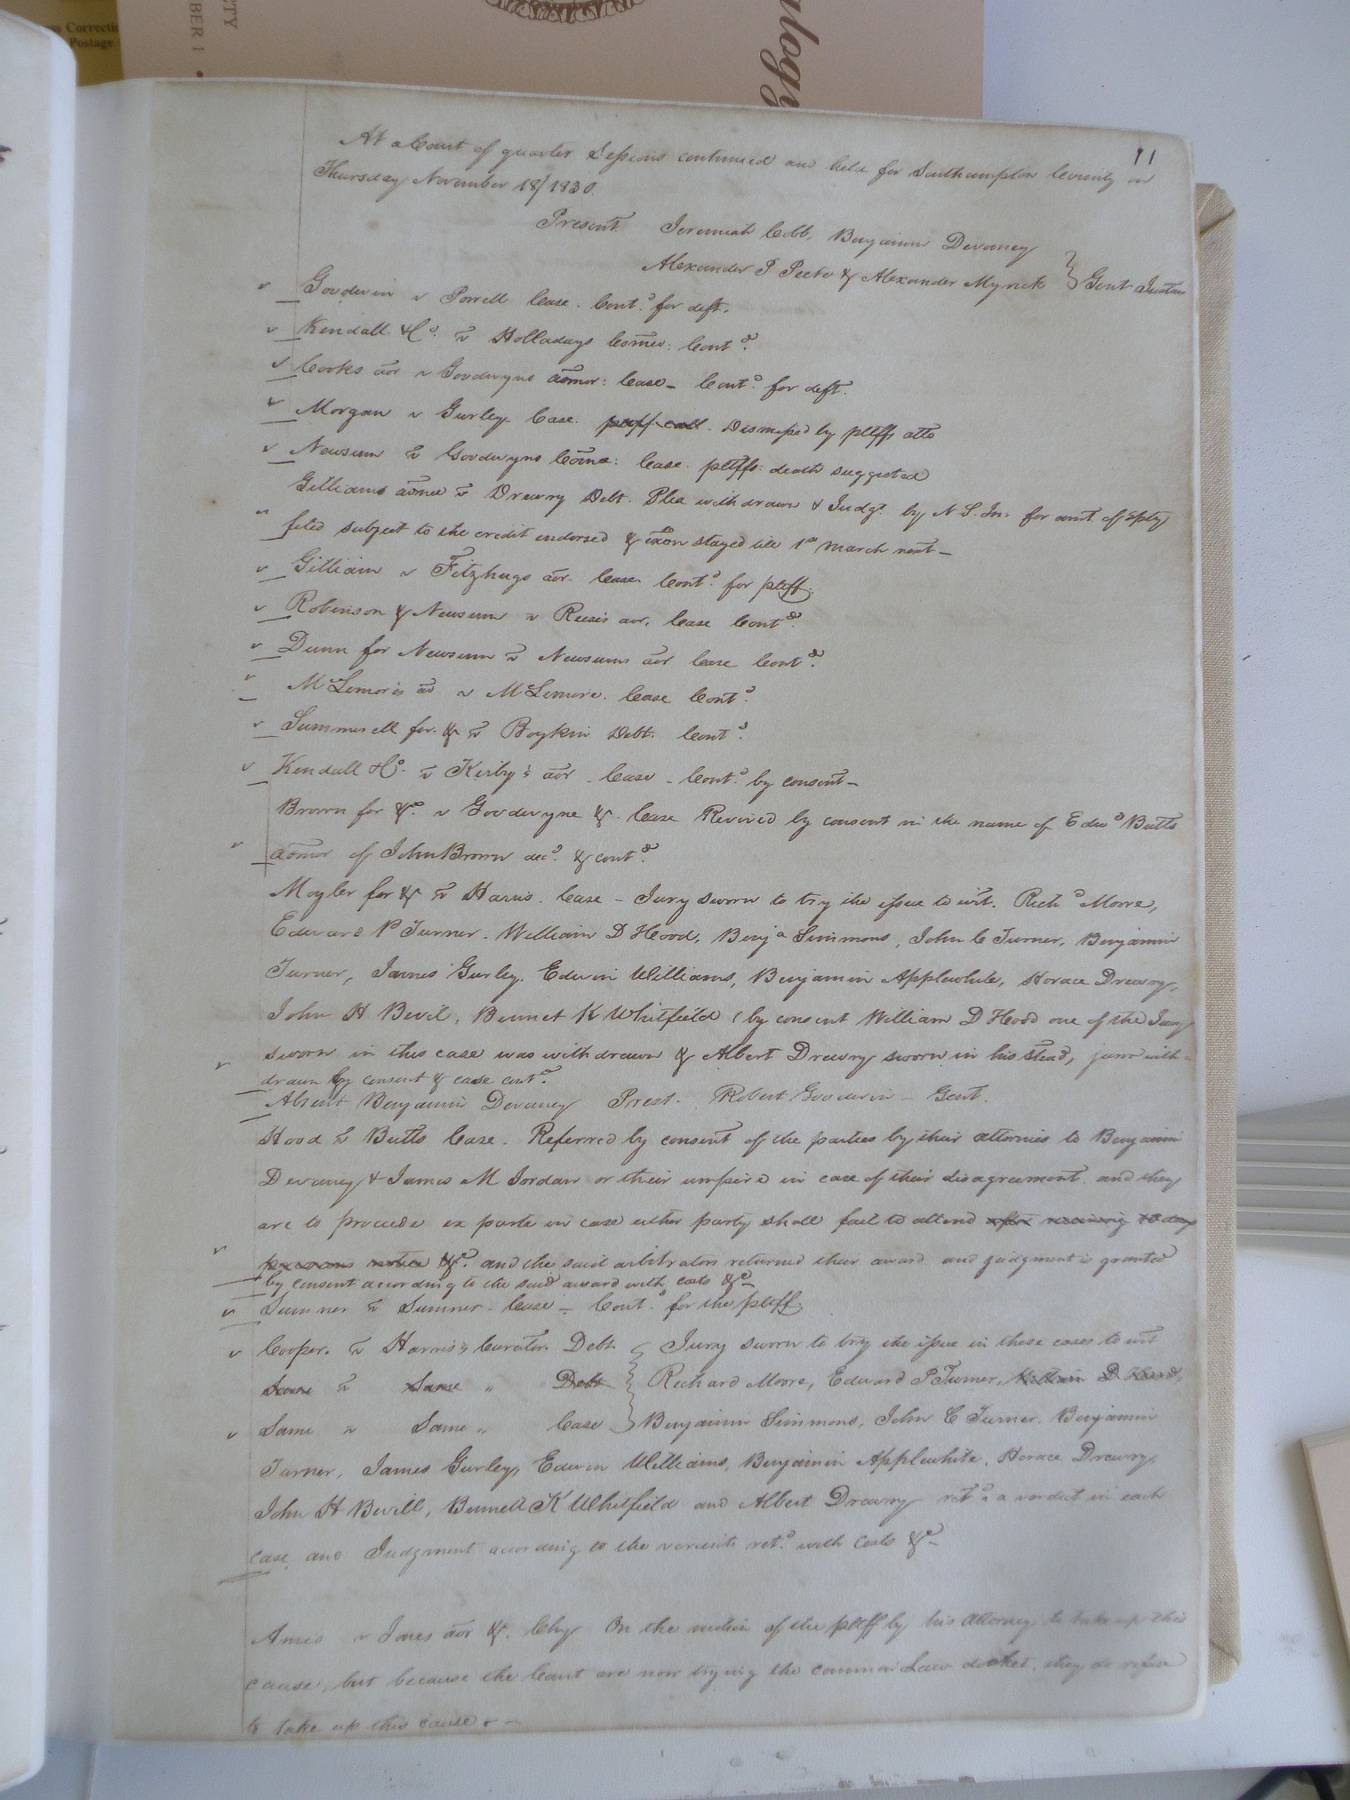 ulogy
CTY
BER 1 •
Correcti
Postage
11
At a Court of quarter Sessions continued and held for Southampton County on
Thursday November 18/1830.
Present. Jeremiah Cobb, Benjamin Devaney
Alexander P Peete & Alexander Myrick } Gent Justices
Goodwin v Powell Case. Cont.d for deft.
Kendall &Co. v Holladays Comee: Cont.d
Cooks aor v Goodwyns admor: Case – Cont.d for deft.
Morgan v Gurley Case. Dismissed by pltffs atto
Newsum v Goodwyns Come: Case. pltffs: death suggested
Gilliams v Drewry Debt. Plea withdrawn & Judgt. by N. S. In: for amt of Splty
filed subject to the credit endorsed & exon stayed till 1st March next –
Gilliam v Fitzhugs aor. Case Cont.d for pltff.
Robinson & Newsum v Reeses aor. Case Cont.d
Dunn for Newsum v Newsums aor Case Cont.d
McLemores ad v McLemore. Case Cont.d
Summerell for. &c v Boykin Debt. Cont.d
Kendall &Co. v Kirby's aor – Case – Cont.d by consent –
Brown for &c. v Goodwyne &c. Case Revived by consent in the name of Edw.d Butts
admor of John Brown dec.d & cont.d
Moyler for &c v Harris. Case – Jury sworn to try the issue to wit. Rich.d Moore,
Edward P Turner. William D Hood, Benj.a Simmons, John C Turner, Benjamin
Turner, James Gurley. Edwin Williams, Benjamin Applewhite, Horace Drewry,
John H Bevil, Bennet K Whitfield (by consent William D Hood one of the Jury
sworn in this case was withdrawn & Albert Drewry sworn in his stead, juror with
drawn by consent & case cont.d
Absent Benjamin Devaney Prest. Robert Goodwin – Gent.
Hood v Butts Case. Referred by consent of the parties by their attornies to Benjamin
Devaney & James M Jordan or their umpire in case of their disagreement. and they
are to proceede ex parte in case either party shall fail to attend after receiving 10 days
previous notice &c. and the said arbitrators returned their award and judgment is granted
by consent according to the said award with costs &c –
Sumner v Sumner – Case – Cont.d for the pltff
Cooper. v Harris's Curator. Debt. } Jury sworn to try the issue in these cases to wit
Same v Same " Debt } Richard Moore, Edward P Turner, William D Hood,
Same v Same " Case } Benjamin Simmons, John C Turner. Benjamin
Turner, James Gurley, Edwin Williams, Benjamin Applewhite, Horace Drewry,
John H Bevill, Bennett K Whitfield and Albert Drewry ret.d a verdict in each
case. and Judgment according to the verdicts ret.d with Costs &c –
Amis v Jones aor &c. Chy On the motion of the pltff by his attorney to take up this
cause, but because the Court are now trying the common Law docket, they do refuse
to take up this cause –